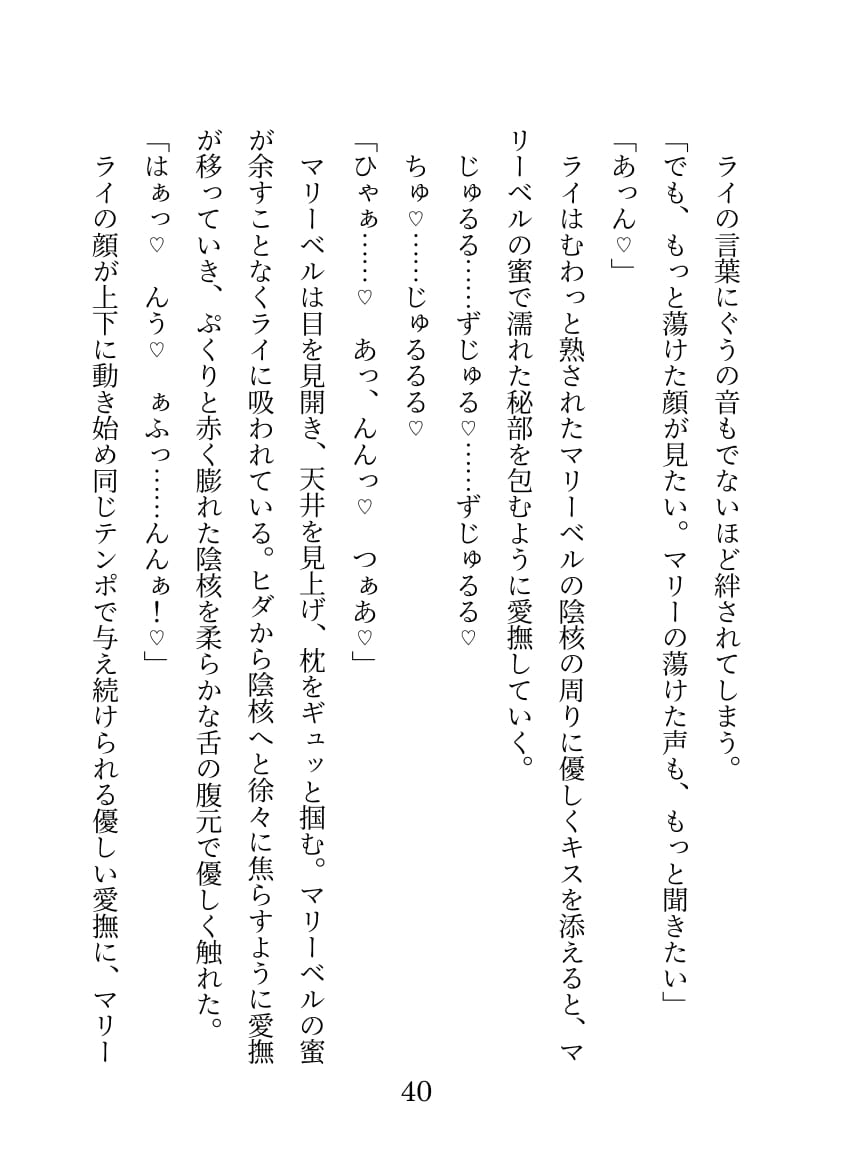 ライの言葉にぐうの音もでないほど絆されてしまう。
「でも、もっと蕩けた顔が見たい。マリーの蕩けた声も、もっと聞きたい」
「あっん♡」
ライはむわっと熟されたマリーベルの陰核の周りに優しくキスを添えると、マ
リーベルの蜜で濡れた秘部を包むように愛撫していく。
じゅるる……ずじゅる♡……ずじゅるる♡
ちゅ♡……じゅるるる♡
「ひゃぁ……♡　あっ、んんっ♡　つぁあ♡」
マリーベルは目を見開き、天井を見上げ、枕をギュッと掴む。マリーベルの蜜
が余すことなくライに吸われている。ヒダから陰核へと徐々に焦らすように愛撫
が移っていき、ぷくりと赤く膨れた陰核を柔らかな舌の腹元で優しく触れた。
「はぁっ♡　んう♡　ぁふっ……んんぁ！♡」
ライの顔が上下に動き始め同じテンポで与え続けられる優しい愛撫に、マリー
40